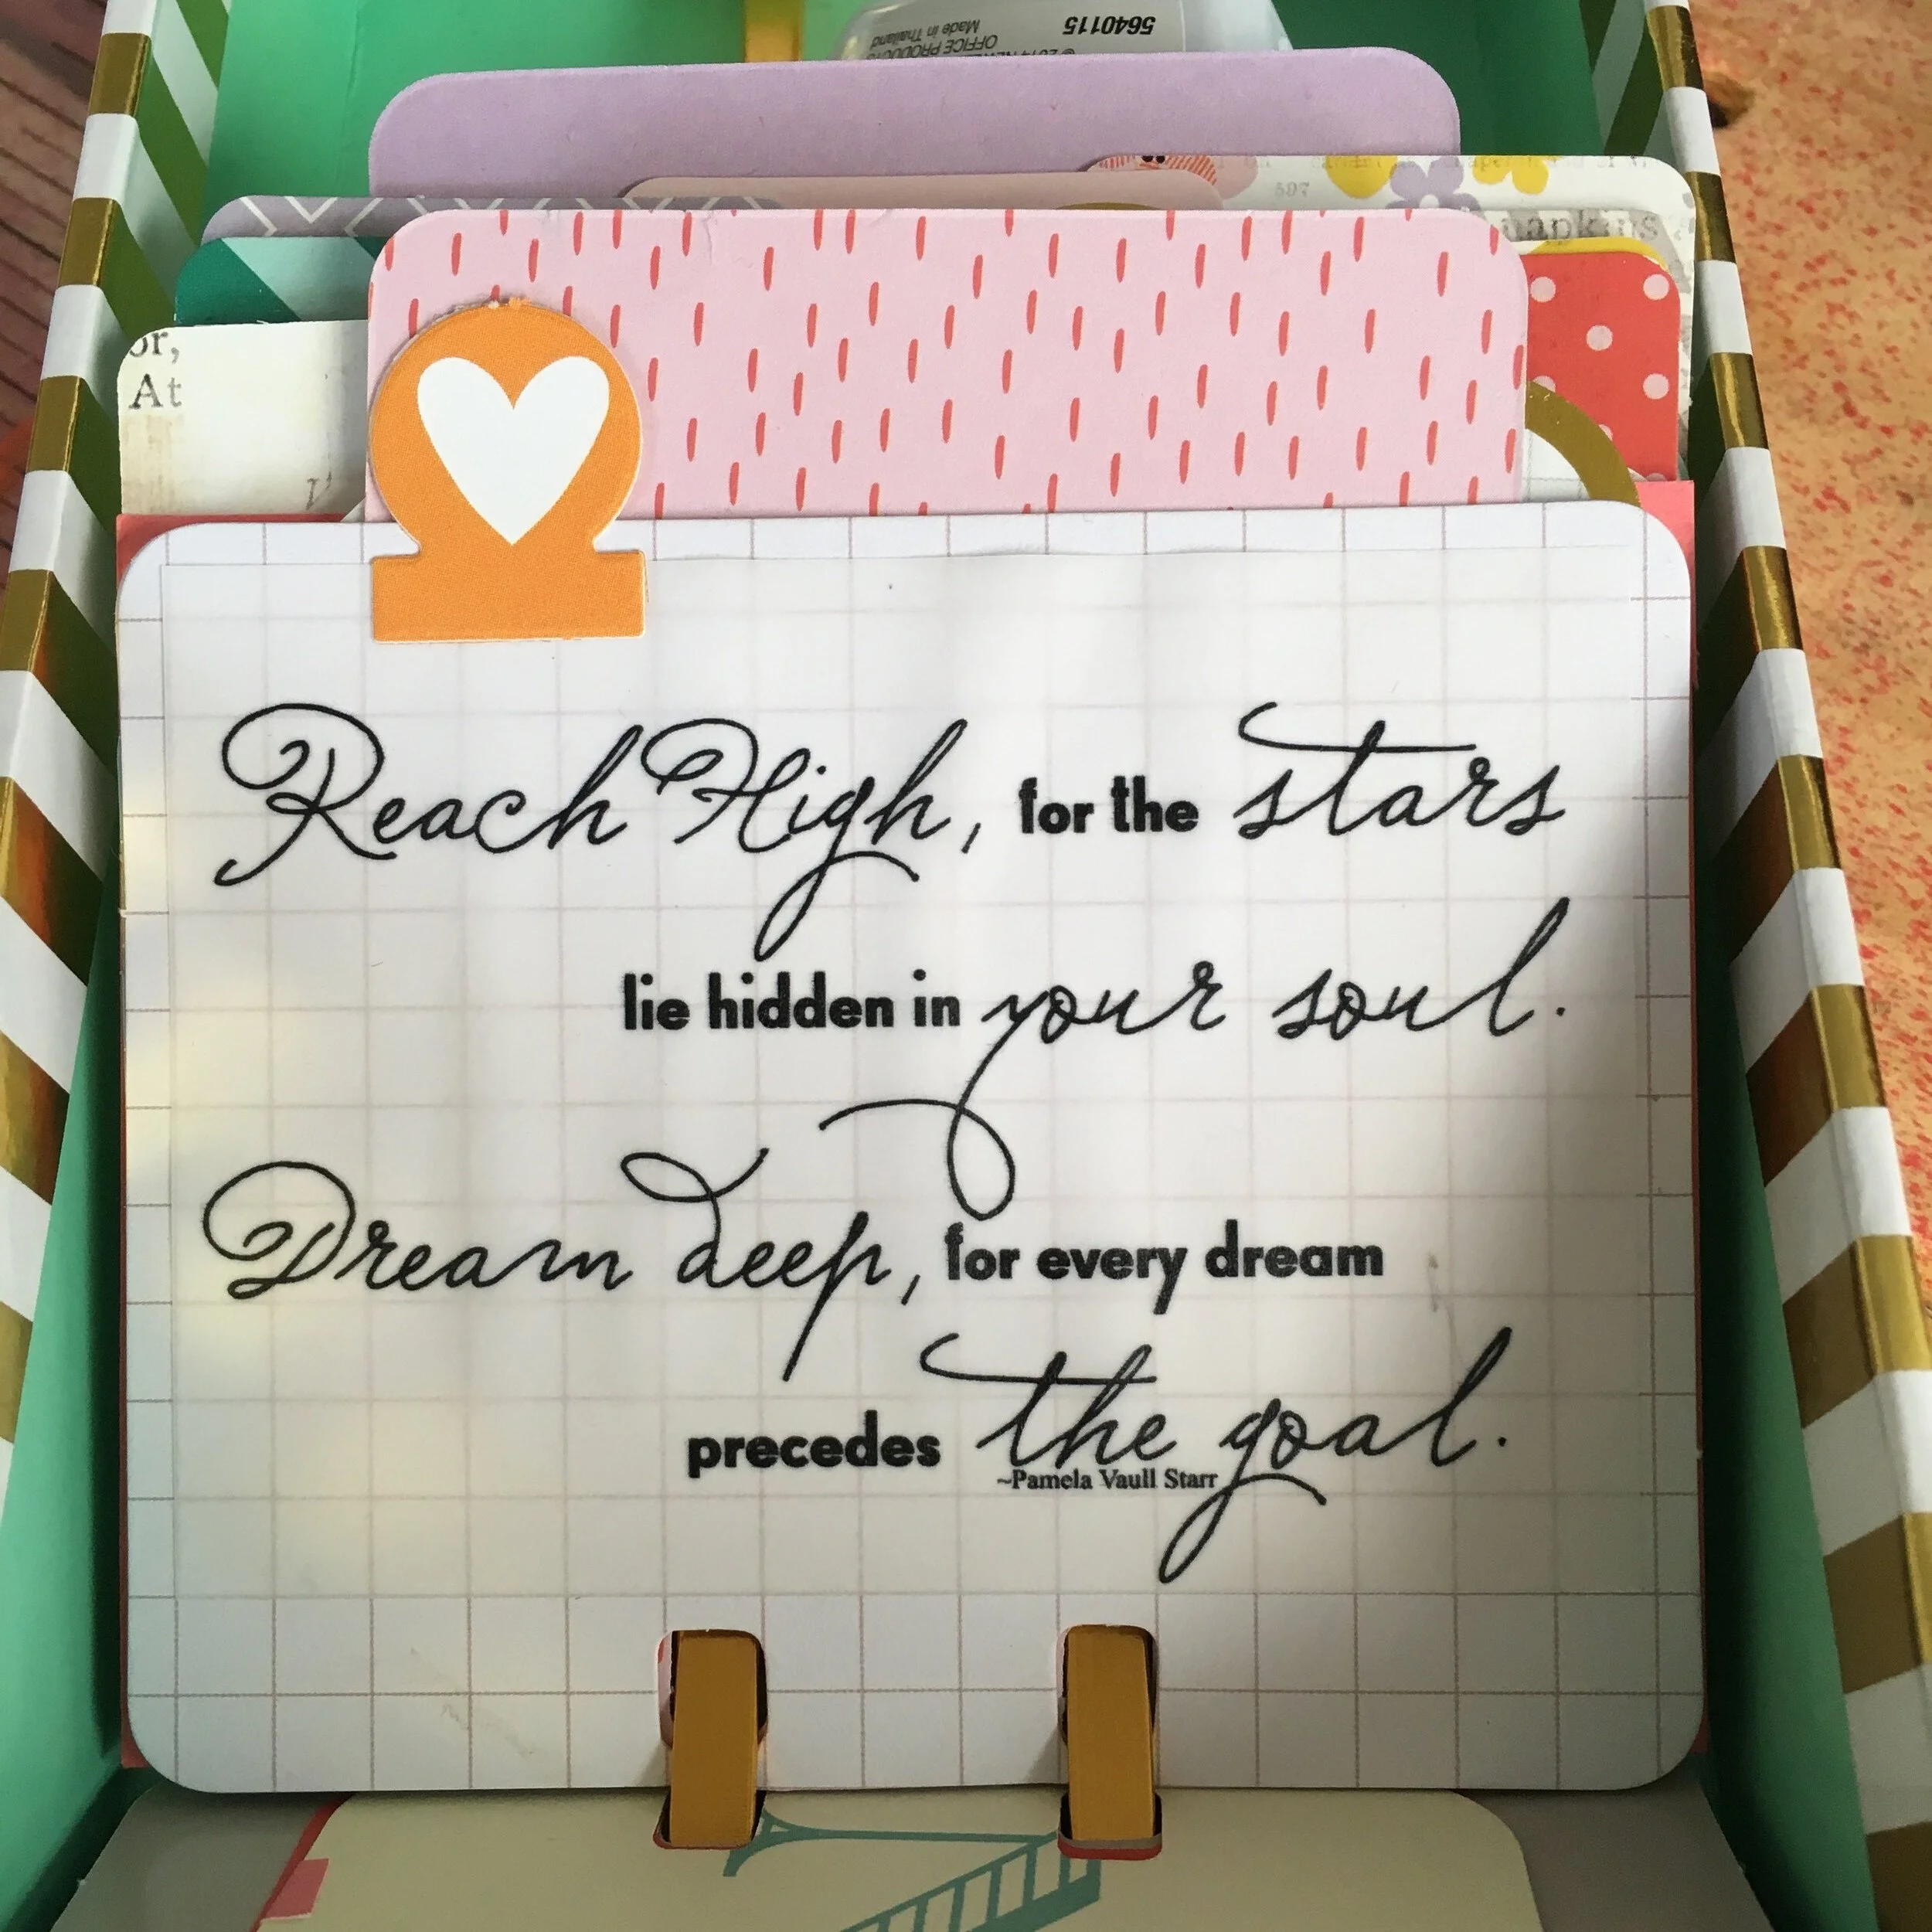 5640115
Made in Thailand
OFFICE PRODUCTS
597
napkins
or,
At
Reach High, for the stars
lie hidden in your soul.
Dream deep, for every dream
precedes the goal.
~Pamela Vaull Starr